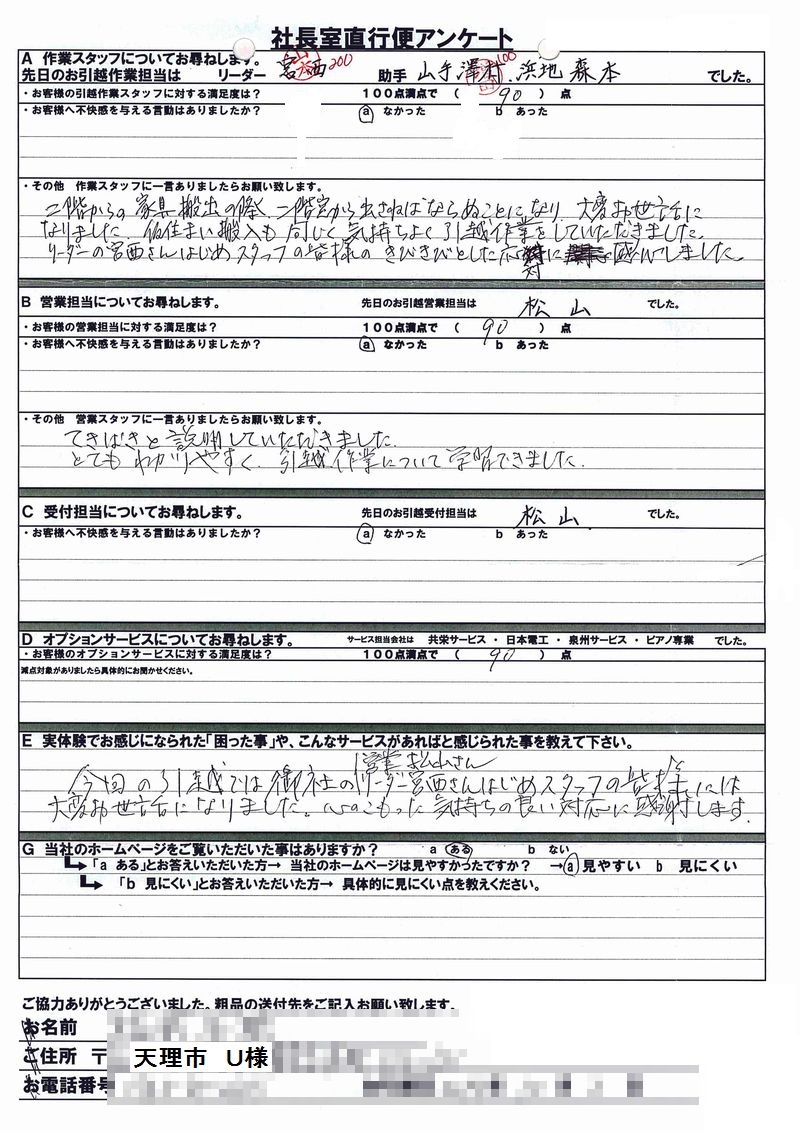 社長室直行便アンケート
A 作業スタッフについてお尋ねします。
先日のお引越作業担当は リーダー 宮西 200 助手 山手 澤村、浜地 森本 100 でした。
・お客様の引越作業スタッフに対する満足度は? 100点満点で ( 90 ) 点
・お客様へ不快感を与える言動はありましたか? a なかった b あった
・その他 作業スタッフに一言ありましたらお願い致します。
二階からの家具搬出の際、二階窓から出さねばならぬことになり、大変お世話に
なりました。仮住まい搬入も同じく気持ちよく引越作業をしていただきました。
リーダーの宮西さんはじめスタッフの皆様のきびきびとした応対に感心しました。
B 営業担当についてお尋ねします。 先日のお引越営業担当は 松山 でした。
・お客様の営業担当に対する満足度は? 100点満点で ( 90 ) 点
・お客様へ不快感を与える言動はありましたか? a なかった b あった
・その他 営業スタッフに一言ありましたらお願い致します。
てきぱきと説明していただきました。
とてもわかりやすく、引越作業について学習できました。
C 受付担当についてお尋ねします。 先日のお引越受付担当は 松山 でした。
・お客様へ不快感を与える言動はありましたか? a なかった b あった
D オプションサービスについてお尋ねします。 サービス担当会社は 共栄サービス ・ 日本電工 ・ 泉州サービス ・ ピアノ専業 でした。
・お客様のオプションサービスに対する満足度は? 100点満点で ( 90 ) 点
減点対象がありましたら具体的にお聞かせください。
E 実体験でお感じになられた「困った事」や、こんなサービスがあればと感じられた事を教えて下さい。
営業松山さん
今回の引越では御社のリーダー宮西さんはじめスタッフの皆様には
大変お世話になりました。心のこもった気持ちの良い対応に感謝します。
G 当社のホームページをご覧いただいた事はありますか? a ある b ない
「a ある」とお答えいただいた方→ 当社のホームページは見やすかったですか? →a 見やすい b 見にくい
「b 見にくい」とお答えいただいた方→ 具体的に見にくい点を教えください。
ご協力ありがとうございました。粗品の送付先をご記入お願い致します。
お名前
ご住所 〒 天理市 U様
お電話番号